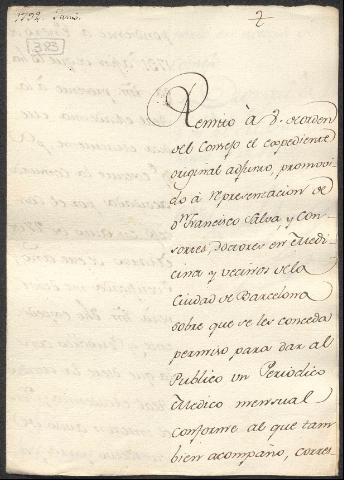 1792. Paris.
2
383
Remito à V. de orden
del Consejo el expediente
original adjunto, promovi-
do à representacion de
Dn. Francisco Salva, y Con-
sortes, Doctores en Medi-
cina y vecinos de la
Ciudad de Barcelona
sobre que se les conceda
permiso para dar al
Publico un Periodico
Medico mensual
conforme al que tam
bien acompaño, corres